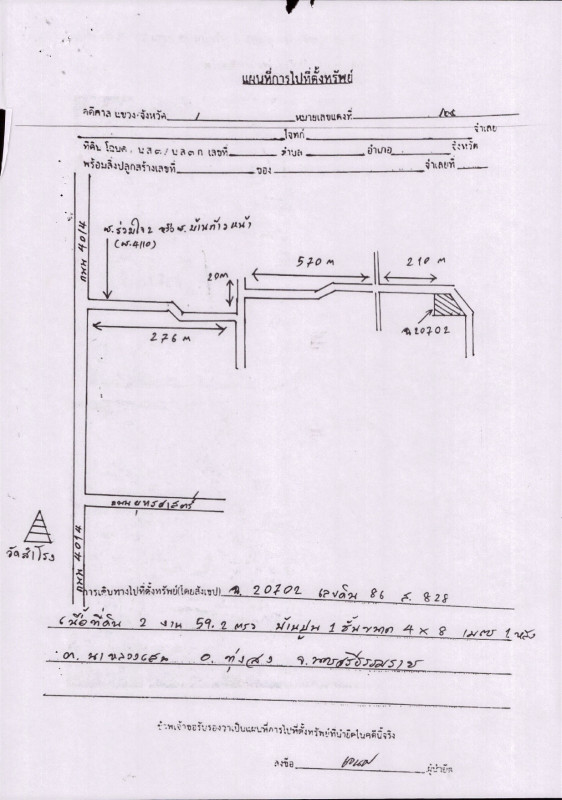 แผนที่การไปที่ตั้งทรัพย์
คดีศาล แขวง/จังหวัด / หมายเลขแดงที่ /๒๕
โจทก์ จำเลย
ที่ดิน โฉนด, น.ส.๓/น.ส.๓ ก. เลขที่ ตำบล อำเภอ จังหวัด
พร้อมสิ่งปลูกสร้างเลขที่ ของ จำเลยที่
ถนน 4014
ซ.ร่วมใจ 2 หรือ ซ.บ้านก้าวหน้า
(ซ.4110)
20 m
570 m
210 m
276 m
ฉ.20702
ถนนยุทธศาสตร์
วัดสำโรง
ถนน 4014
การเดินทางไปที่ตั้งทรัพย์(โดยสังเขป) ฉ. 20702 เลขดิน 86 ส. 828
เนื้อที่ดิน 2 งาน 59.2 ตรว บ้านปูน 1 ชั้นขนาด 4 x 8 เมตร 1 หลัง
ต. นาหลวงเสน อ. ทุ่งสง จ. นครศรีธรรมราช
ข้าพเจ้าขอรับรองว่าเป็นแผนที่การไปที่ตั้งทรัพย์ที่นำยึดในคดีนี้จริง
ลงชื่อ ผู้นำยึด